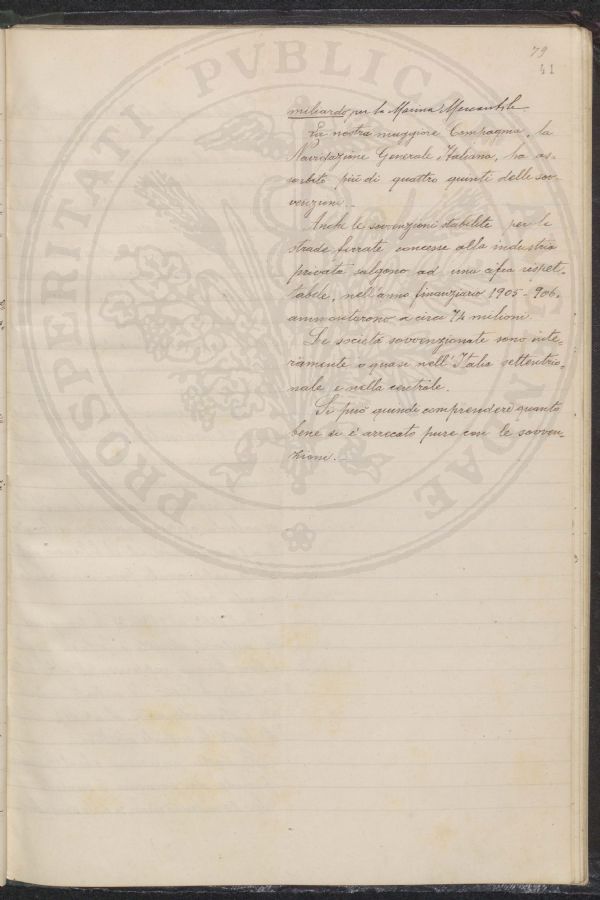 79
41
miliardo per la Marina Mercantile.
La nostra maggiore Compagnia, la
Navigazione Generale Italiana, ha as-
sorbito più di quattro quinti delle sov-
venzioni.
Anche le sovvenzioni stabilite per le
strade ferrate concesse alla industria
privata salgono ad una cifra rispet-
tabile, nell'anno finanziario 1905-906,
ammontarono a circa 74 milioni.
Le società sovvenzionate sono inte-
ramente o quasi nell'Italia settentrio-
nale e nella centrale.
Si può quindi comprendere quanto
bene si è arrecato pure con le sovven-
zione.
PROSPERITATI PVBLICAE